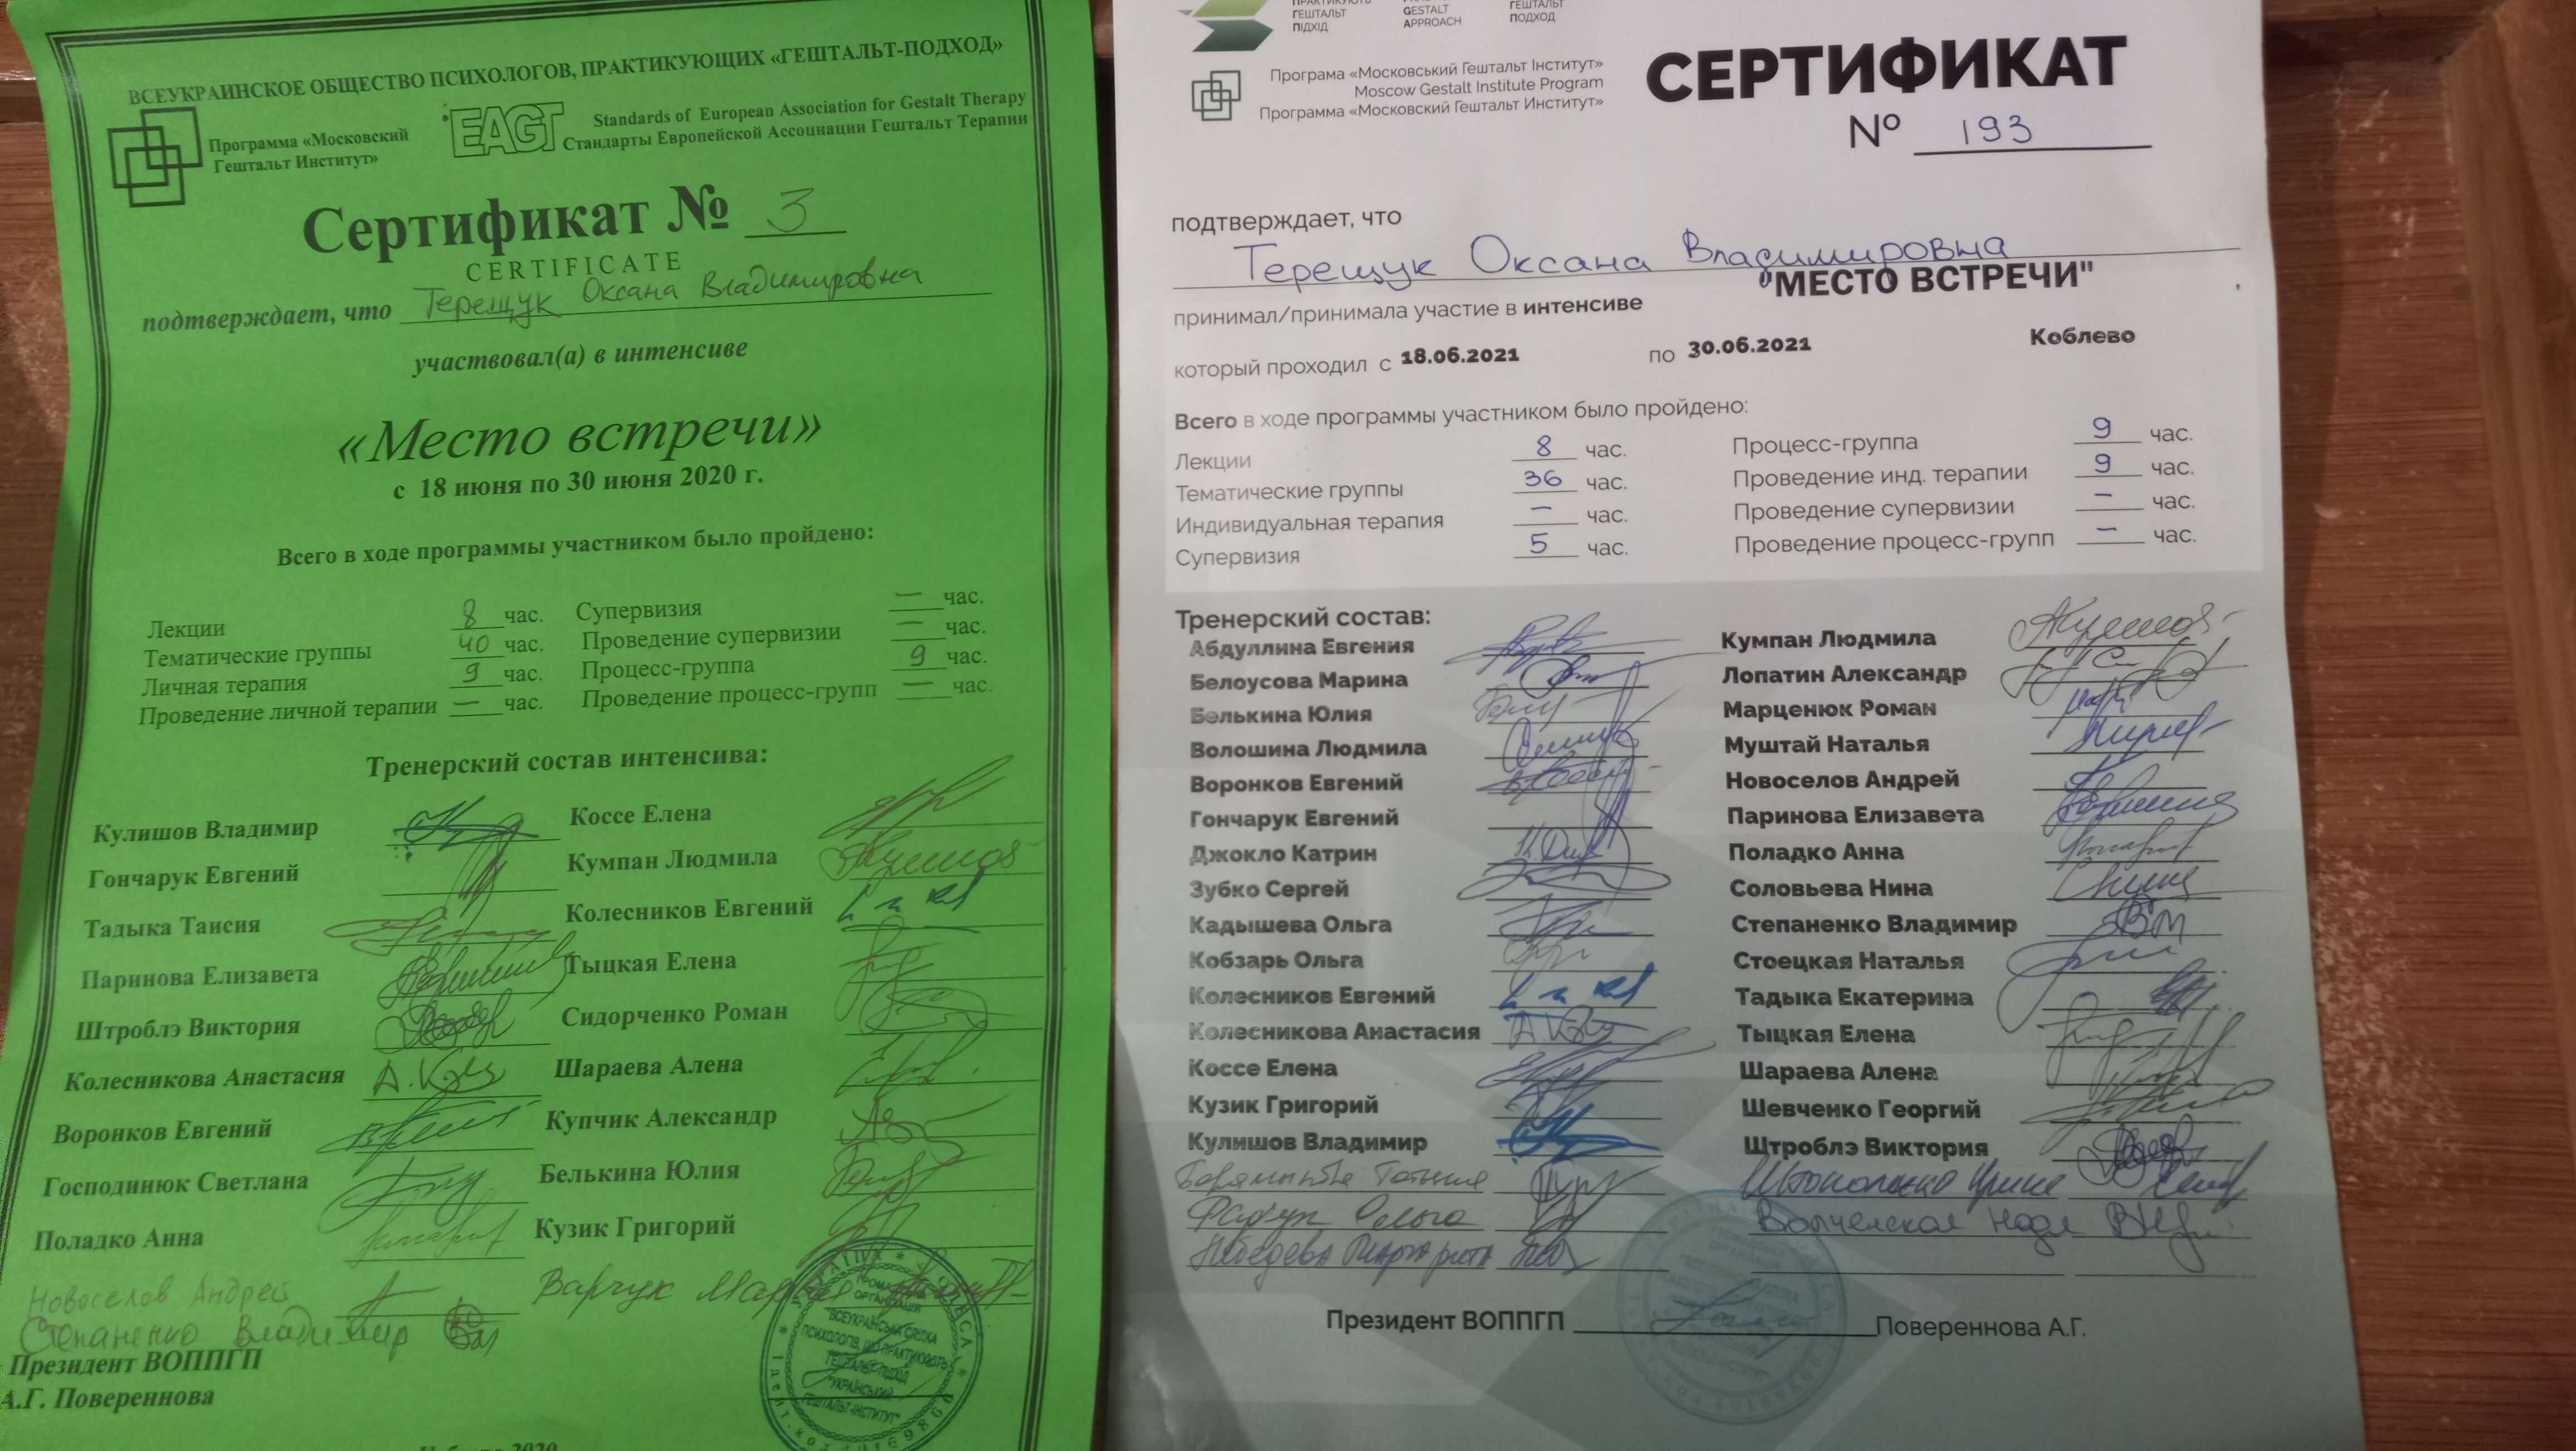 ВСЕУКРАИНСКОЕ ОБЩЕСТВО ПСИХОЛОГОВ, ПРАКТИКУЮЩИХ «ГЕШТАЛЬТ-ПОДХОД»
Программа «Московский
Гештальт Институт»
EAGT
Standards of European Association for Gestalt Therapy
Стандарты Европейской Ассоциации Гештальт Терапии
Сертификат № 3
CERTIFICATE
подтверждает, что Терещук Оксана Владимировна
участвовал(а) в интенсиве
«Место встречи»
с 18 июня по 30 июня 2020 г.
Всего в ходе программы участником было пройдено:
Лекции 8 час. Супервизия — час.
Тематические группы 40 час. Проведение супервизии — час.
Личная терапия 9 час. Процесс-группа 9 час.
Проведение личной терапии — час. Проведение процесс-групп — час.
Тренерский состав интенсива:
Кулишов Владимир Коссе Елена
Гончарук Евгений Кумпан Людмила
Тадыка Таисия Колесников Евгений
Паринова Елизавета Тыцкая Елена
Штроблэ Виктория Сидорченко Роман
Колесникова Анастасия Шараева Алена
Воронков Евгений Купчик Александр
Господинюк Светлана Белькина Юлия
Поладко Анна Кузик Григорий
Новоселов Андрей Варчук
Степаненко Владимир
Президент ВОППГП
А.Г. Повереннова
ГРОМАДСЬКА
ОРГАНІЗАЦІЯ
"ВСЕУКРАЇНСЬКА СПІЛКА
ПСИХОЛОГІВ, ЩО ПРАКТИКУЮТЬ
ГЕШТАЛЬТ-ПІДХІД
"УКРАЇНСЬКИЙ
ГЕШТАЛЬТ-ІНСТИТУТ"
ГЕШТАЛЬТ GESTALT ГЕШТАЛЬТ
ПІДХІД APPROACH ПОДХОД
Програма «Московський Гештальт Інститут»
Moscow Gestalt Institute Program
Программа «Московский Гештальт Институт»
СЕРТИФИКАТ
№ 193
подтверждает, что
Терещук Оксана Владимировна
"МЕСТО ВСТРЕЧИ"
принимал/принимала участие в интенсиве
который проходил с 18.06.2021 по 30.06.2021 Коблево
Всего в ходе программы участником было пройдено:
Лекции 8 час. Процесс-группа 9 час.
Тематические группы 36 час. Проведение инд. терапии 9 час.
Индивидуальная терапия — час. Проведение супервизии — час.
Супервизия 5 час. Проведение процесс-групп — час.
Тренерский состав:
Абдуллина Евгения Кумпан Людмила
Белоусова Марина Лопатин Александр
Белькина Юлия Марценюк Роман
Волошина Людмила Муштай Наталья
Воронков Евгений Новоселов Андрей
Гончарук Евгений Паринова Елизавета
Джокло Катрин Поладко Анна
Зубко Сергей Соловьева Нина
Кадышева Ольга Степаненко Владимир
Кобзарь Ольга Стоецкая Наталья
Колесников Евгений Тадыка Екатерина
Колесникова Анастасия Тыцкая Елена
Коссе Елена Шараева Алена
Кузик Григорий Шевченко Георгий
Кулишов Владимир Штроблэ Виктория
Ольга
Лебедева Маргарита
Президент ВОППГП Повереннова А.Г.